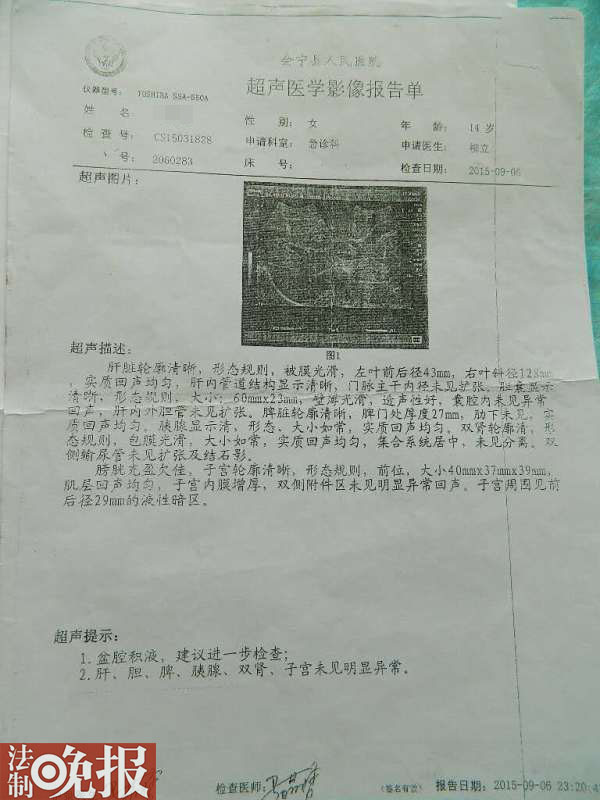 会宁县人民医院
超声医学影像报告单
仪器型号: TOSHIBA SSA-660A
姓 名
性 别: 女
年 龄: 14 岁
检 查 号: CS15031828
申请科室: 急诊科
申请医生: 柳立
号: 2060283
床 号:
检查日期: 2015-09-06
超声图片:
图1
超声描述:
肝脏轮廓清晰, 形态规则, 被膜光滑, 左叶前后径43mm, 右叶斜径128mm
, 实质回声均匀, 肝内管道结构显示清晰, 门脉主干内径未见扩张。胆囊显示
清晰, 形态规则, 大小: 60mmx23mm, 壁薄光滑, 透声性好, 囊腔内未见异常
回声, 肝内外胆管未见扩张。脾脏轮廓清晰, 脾门处厚度27mm, 肋下未见, 实
质回声均匀。胰腺显示清, 形态、大小如常, 实质回声均匀。双肾轮廓清, 形
态规则, 包膜光滑, 大小如常, 实质回声均匀, 集合系统居中, 未见分离。双
侧输尿管未见扩张及结石影。
膀胱充盈欠佳。子宫轮廓清晰, 形态规则, 前位, 大小40mmx37mmx39mm,
肌层回声均匀, 子宫内膜增厚, 双侧附件区未见明显异常回声。子宫周围见前
后径29mm的液性暗区。
超声提示:
1. 盆腔积液, 建议进一步检查;
2. 肝、胆、脾、胰腺、双肾、子宫未见明显异常。
法制晚报
检查医师:
(签名有效)
报告日期: 2015-09-06 23:20:4